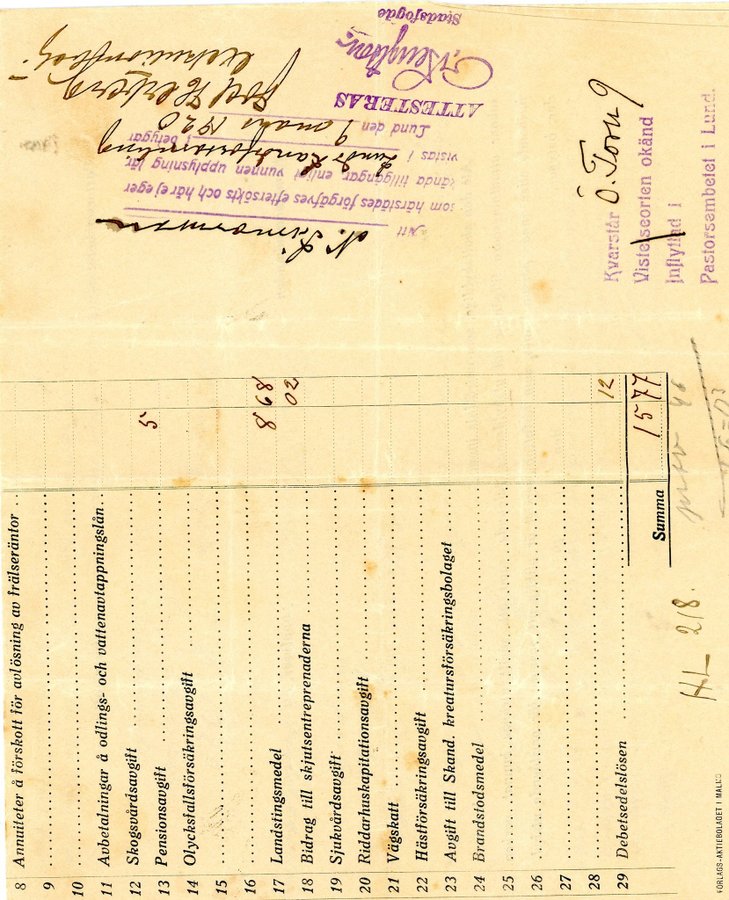 8 Annuiteter å förskott för avlösning av frälseräntor
9
10
11 Avbetalningar å odlings- och vattenavtappningslån
12 Skogsvårdsavgift
13 Pensionsavgift 5
14 Olycksfallsförsäkringsavgift
15
16 8 68
17 Landstingsmedel 02
18 Bidrag till skjutsentreprenaderna
19 Sjukvårdsavgift
20 Riddarhuskapitationsavgift
21 Vägskatt
22 Hästförsäkringsavgift
23 Avgift till Skand. kreatursförsäkringsbolaget
24 Brandstodsmedel
25
26
27
28
29 Debetsedelslösen 12
Summa 15 77
HL 218.
FÖRLAGS-AKTIEBOLAGET I MALMÖ
Kvarstår Ö. Torn 9
Vistelseorten okänd
Inflyttad i
Pastorsembetet i Lund.
Att
som härstädes förgäfves eftersökts och här ej eger
kända tillgångar, enligt vunnen upplysning lär
vistas i Lunds Landsförsamling betygar
Lund den 9 mars 1920
ATTESTERAS
Stadsfogde